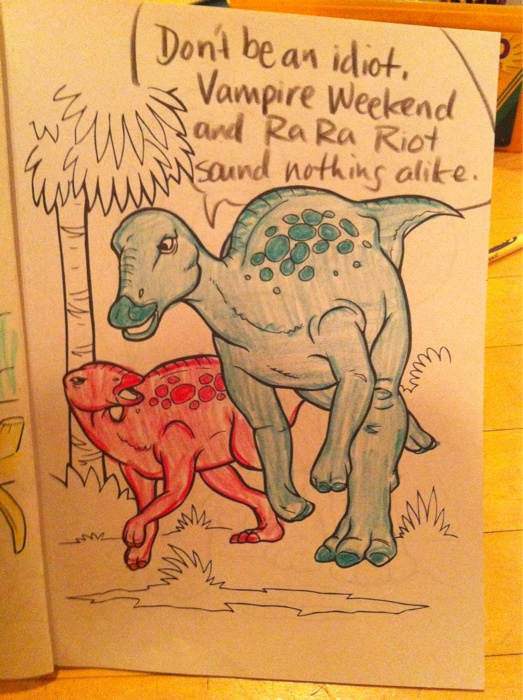 Don't be an idiot.
Vampire Weekend
and Ra Ra Riot
sound nothing alike.